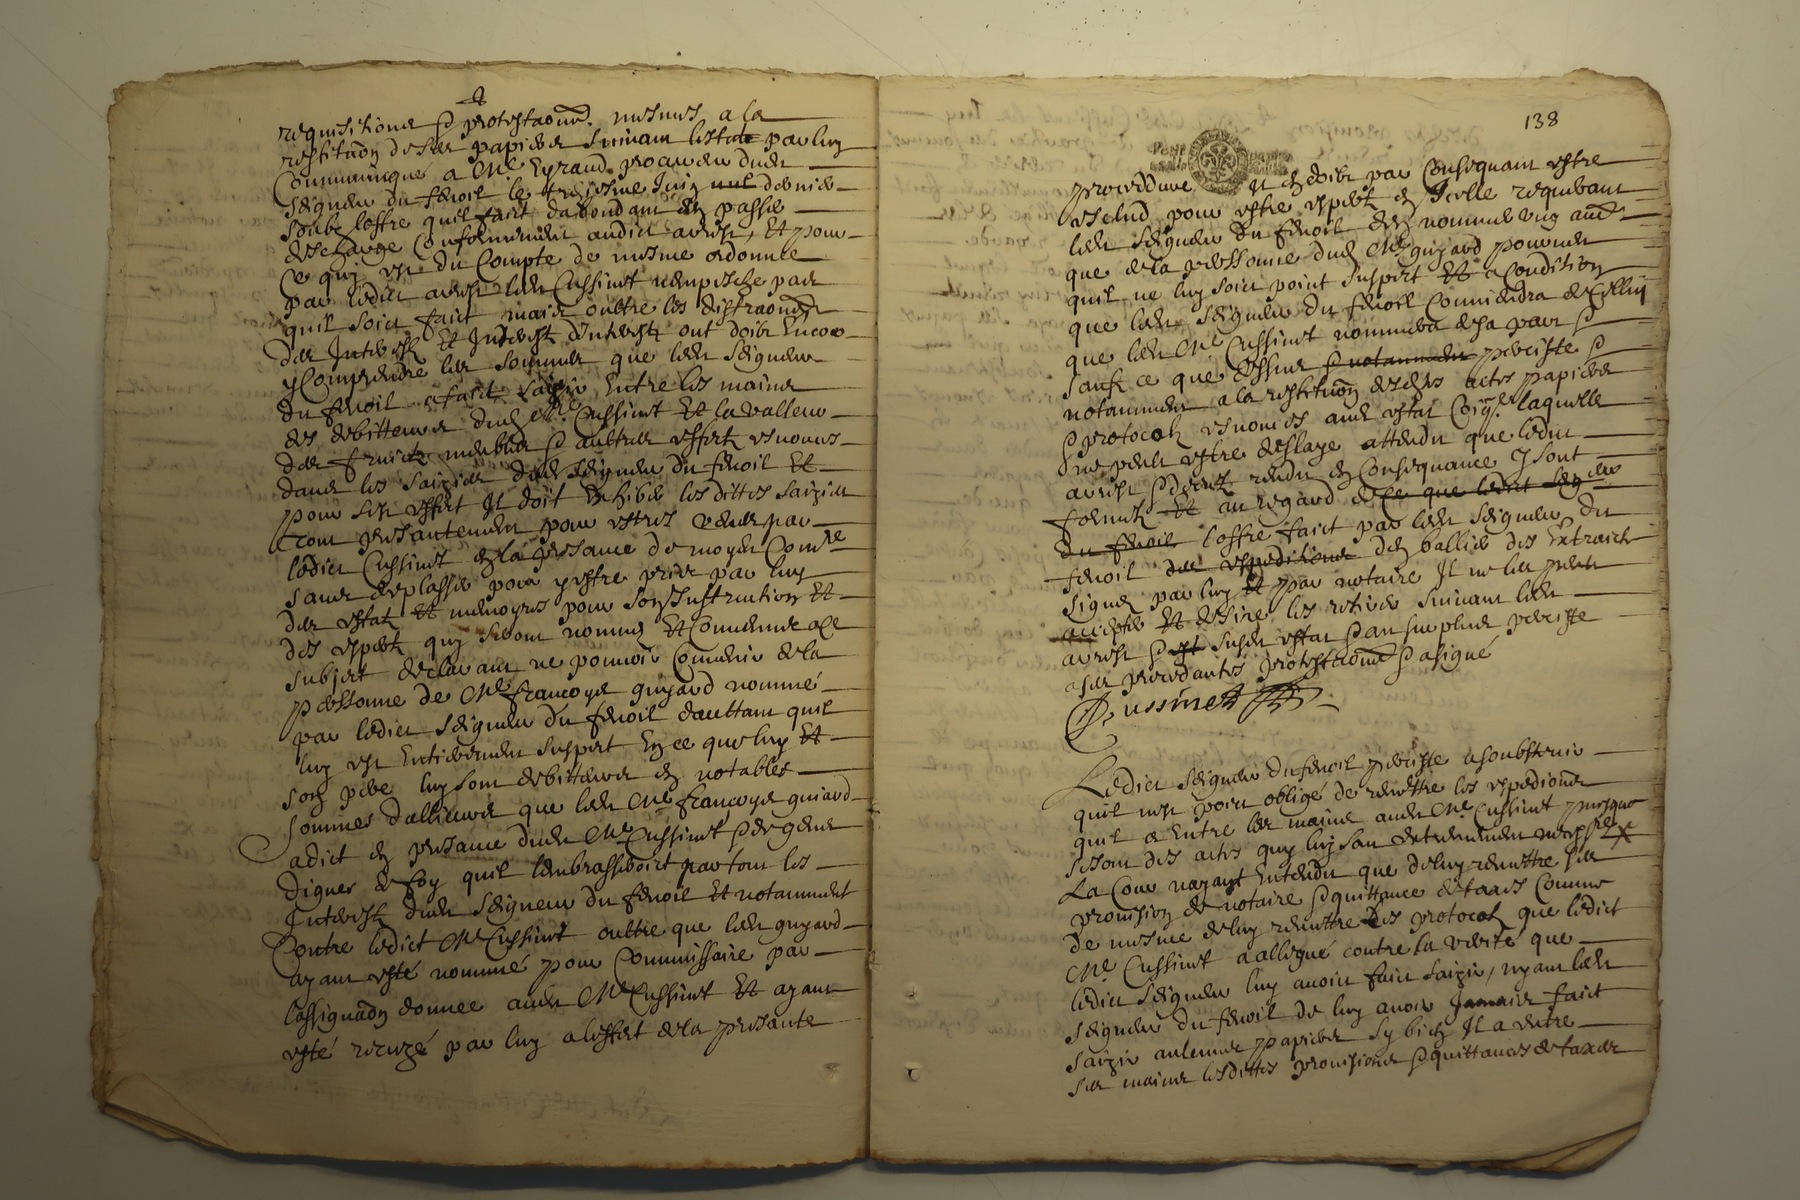 requisitions & protestaons. mesmes a la
restituon de ses papiers suivant lestat par luy
Communiqué a Me Eyraud procureur dudit
Seigneur du fenoil le treziesme Juin dernier
soubz loffre quil faict dabondant den passer
descharge Conformement audict arrest, Et pour
ce quy est du Compte de mesme ordonné
par ledict arrest ledit Cussinet nempesche pas
quil soict faict mais oultre les distraons
des Interestz Et Interestz dinterestz ont doibt Encor
y Comprendre les sommes que ledit Seigneur
du fenoil a faict saizir Entre les mains
des debitteurs dudit Me Cussinet Et la valleur
des fruictz meubles & aultres effectz esnoncés
dans les saizies dudit Seigneur du fenoil Et
pour cest effect Il doit Exhiber les dittes saizies
tout presantement pour estres veues par
ledict Cussinet En la presance de moydit Comre
sans desplasser pour y estre prins par luy
des estatz Et memoyres pour son Instruction Et
des expertz quy seront nommés Et Convenus a ce
subject declarant ne pouvoir Convenir de la
personne de Me francoys guyard nommé
par ledict Seigneur du fenoil dauttant quil
luy est Entierement suspect En ce que luy Et
son pere luy sont debitteurs En notables
sommes dallieurs que ledit Me francoys guiard
a dict En presance dudit Me Cussinet & de gens
dignes de foy quil Lembrasseroict par tout les
Interestz dudit Seigneur du fenoil Et notamment
Contre ledict Me Cussinet oultre que ledit guyard
ayant esté nommé pour Commissaire par
lassignaon donnee audit Me Cussinet Et ayant
esté recuzé par luy a leffect de la presante
138
procedure Il doibt par Consequant estre
exclud pour estre expert En Icelle requerant
ledit Seigneur du fenoil den nommer ung autre
que de la personne dudit Me guyard pourveu
quil ne luy soict point suspect Et a Condition
que ledit Seigneur du fenoil Conviendra de Celluy
que ledit Me Cussinet nommera de sa part &
sauf ce que dessus & notamment perciste &
notamment a la restituon desdits actes papiers
& protocolz esnoncés audit estat laquelle
ne peult estre deslaye attendu que ledict
arrest & decretz rendus En Consequance y sont
formelz Et au regard de ce que ledit Seigneur
du fenoil loffre faict par ledit Seigneur du
fenoil des expeditions den ballier des Extraictz
signés par luy Et par notaire Il ne les peult
accepter Et desire les retirer suivant ledit
arrest & susdit estat & au surplus perciste
a ses precedantes protestaons & a signé
Cussinet
Ledict Seigneur du fenoil perciste a soubstenir
quil nest point obligé de remettre les expedions
quil a Entre les mains audit Me Cussinet puisque
se sont des actes quy luy sont
La Cour nayant Entendu que de luy remettre ses
provision de notaire & quittance de taxes Comme
de mesme de luy remettre Les protocolz que ledict
Me Cussinet a allegué contre la verité que
ledict Seigneur luy avoir faict saizir, nyant ledit
Seigneur du fenoil de luy avoir Jamais faict
saizir aulcuns papiers sy bien Il a Entre
ses mains lesdittes provisions & quittances de taxes